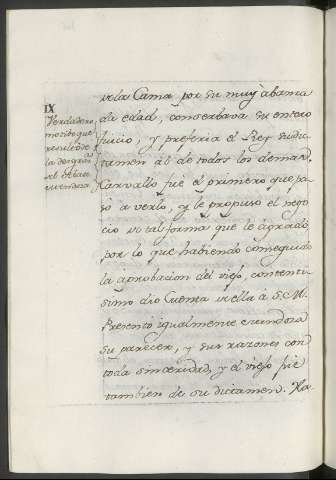 IX
Verdadero
motivo que
resultò de
la desgracia
de la Cama por su muy abanza
da edad, conserbava su entero
juicio, y preferia el Rey su dic
tamen al de todos los demas.
Carvallo fuè el primero que pa
só a verlo, y le propuso el nego
cio de tal forma que le agradó
por lo que habiendo conseguido
la aprobacion del viejo, contenti
simo dio Cuenta de ella à S. M.
Presentó igualmente
su parecer, y sus razones con
toda sinceridad, y el viejo fuè
tambien de su dictamen.